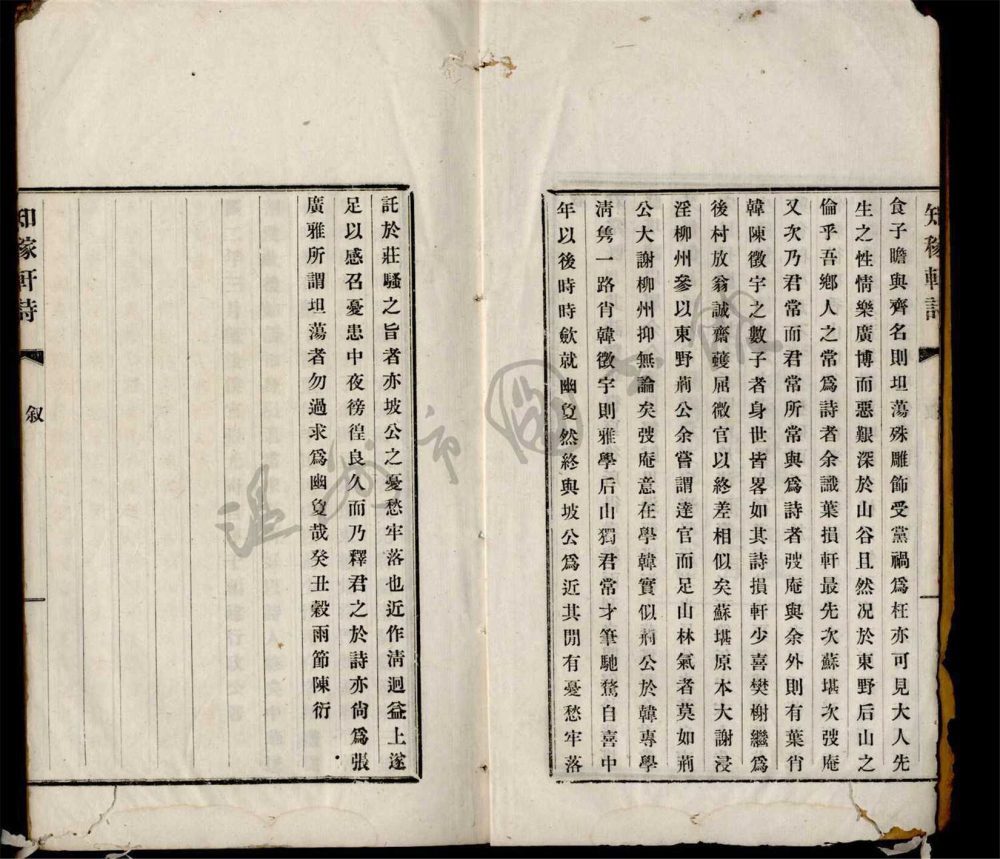 知稼軒詩
食子瞻與齊名則坦蕩殊雕飾受黨禍為枉亦可見大人先
生之性情樂廣博而惡艱深於山谷且然况於東野后山之
倫乎吾鄉人之常為詩者余識葉損軒最先次蘇堪次弢庵
又次乃君常而君常所常與為詩者弢庵與余外則有葉肖
韓陳徵宇之數子者身世皆畧如其詩損軒少喜樊榭繼為
後村放翁誠齋軉屈微官以終差相似矣蘇堪原本大謝浸
淫柳州參以東野荊公余嘗謂達官而足山林氣者莫如荊
公大謝柳州抑無論矣弢庵意在學韓實似荊公於韓專學
清雋一路肖韓徵宇則雅學后山獨君常才筆馳騖自喜中
年以後時時歛就幽夐然終與坡公為近其閒有憂愁牢落
託於莊騷之旨者亦坡公之憂愁牢落也近作清迥益上遂
足以感召憂患中夜徬徨良久而乃釋君之於詩亦尙為張
廣雅所謂坦蕩者勿過求為幽夐哉癸丑穀雨節陳衍
知稼軒詩
叙
溫州市圖書館